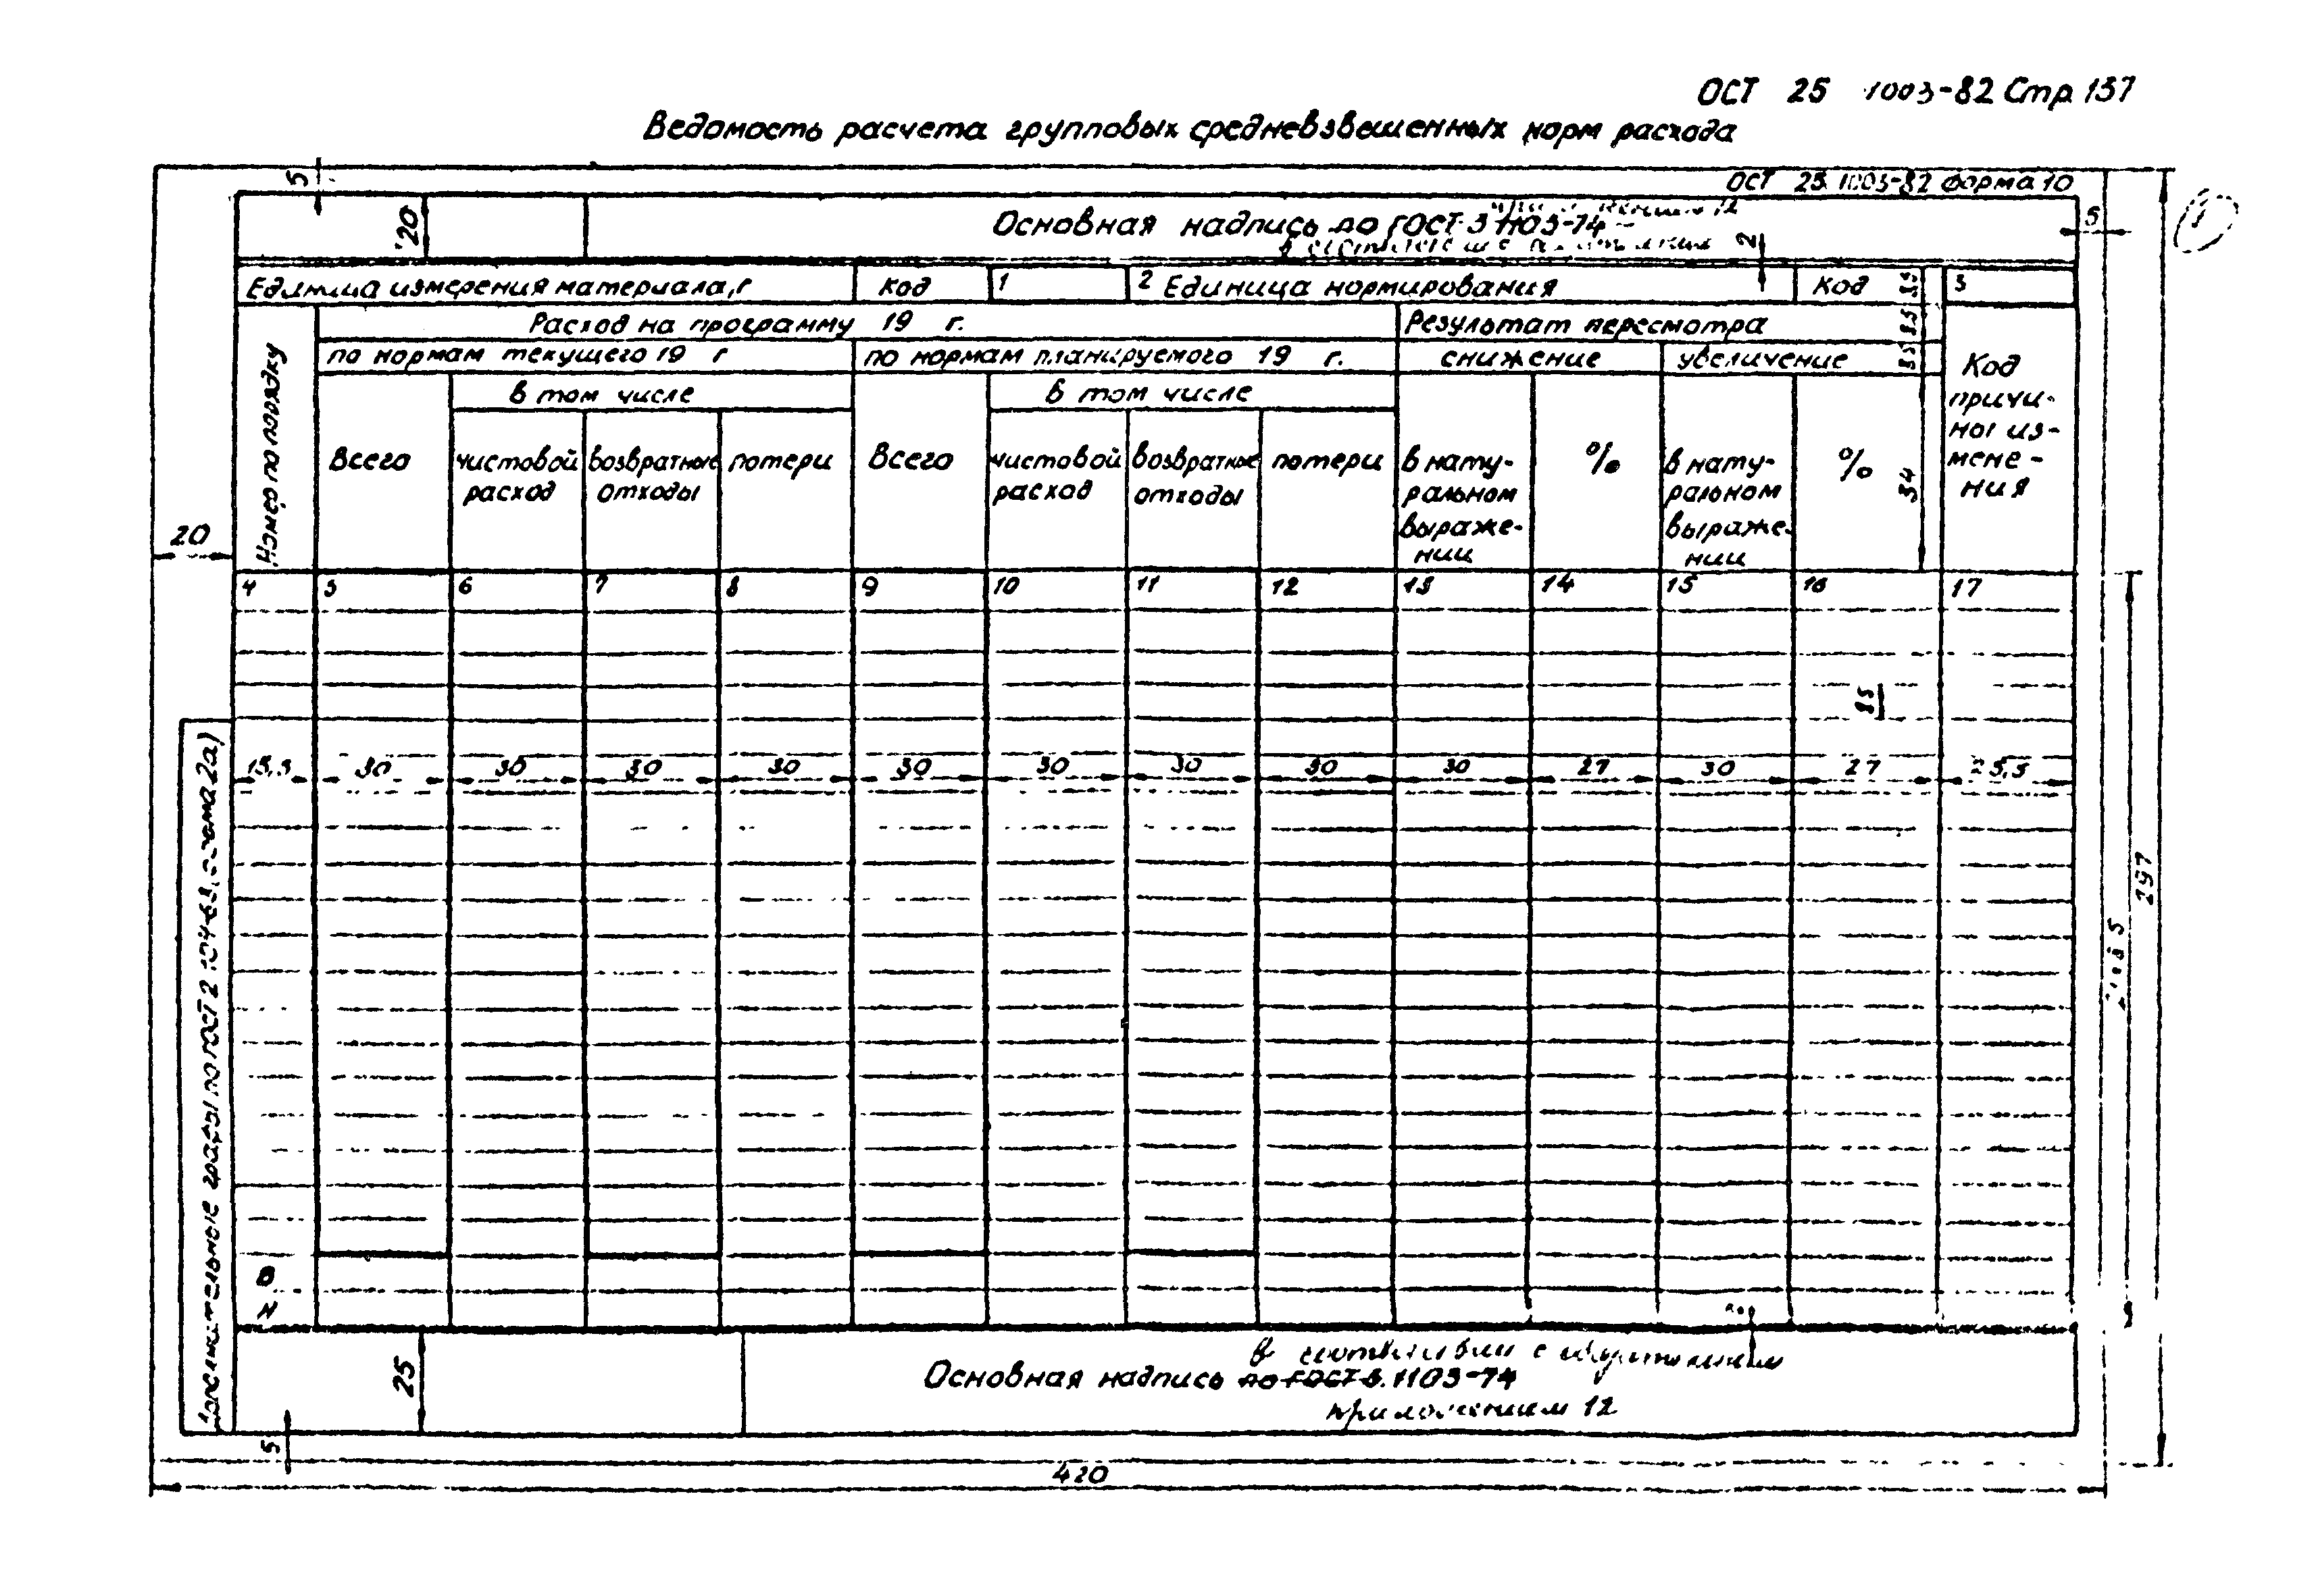 ОСТ 25 1003-82 Стр 137
Ведомость расчета групповых средневзвешенных норм расхода
ОСТ 25 1003-82 Форма 10
5
20
Основная надпись по ГОСТ 3 1103-74
12
2
5
Единица измерения материала, г
Код
1
2 Единица нормирования
Код
3
Номер по порядку
Расход на программу 19 г.
Результат пересмотра
по нормам текущего 19 г
по нормам планируемого 19 г.
снижение
увеличение
Код
причи-
ны из-
мене-
ния
в том числе
в том числе
Всего
чистовой
расход
возвратные
отходы
потери
Всего
чистовой
расход
возвратные
отходы
потери
в нату-
ральном
выраже-
нии
%
в нату-
ральном
выраже-
нии
%
8,5
8,5
34
20
4 5 6 7 8 9 10 11 12 13 14 15 16 17
8,5
15,5 30 30 30 30 30 30 30 30 30 27 30 27 25,5
297
Дополнительные графы по ГОСТ 2.104-68, форма 2а)
25
в соответствии с
Основная надпись по ГОСТ 3.1103-74
приложением 12
5
420